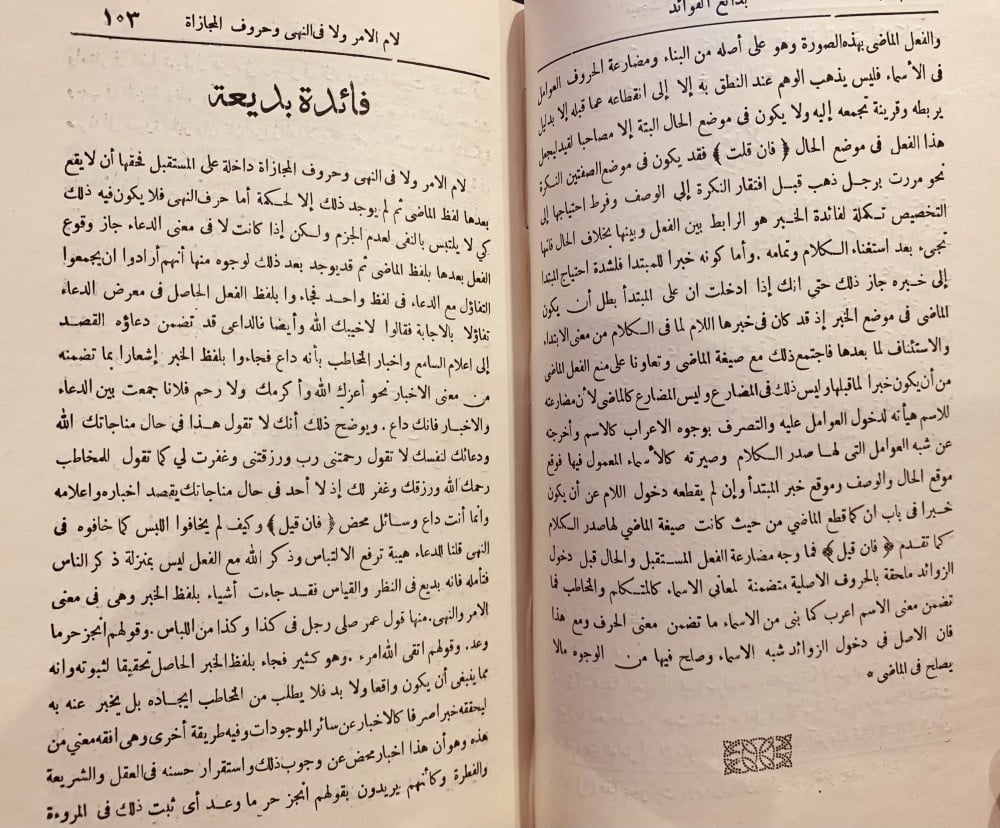 بدائع الفوائد
والفعل الماضى بهذه الصورة وهو على أصله من البناء ومضارعة الحروف العوامل
فى الأسماء فليس يذهب الوهم عند النطق به إلا إلى انقطاعه عما قبله إلا بدليل
يربطه وقرينة تجمعه إليه ولا يكون فى موضع الحال البتة إلا مصاحبا لقد ليجعل
هذا الفعل فى موضع الحال ﴿ فان قلت ﴾ فقد يكون فى موضع الصفتين النكرة
نحو مررت برجل ذهب قبل افتقار النكرة إلى الوصف وفرط احتياجها إلى
التخصيص تكملة لفائدة الخبر هو الرابط بين الفعل وبينها بخلاف الحال فانها
تجىء بعد استغناء الكلام وتمامه . وأما كونه خبرا للمبتدا فلشدة احتياج المبتدا
إلى خبره جاز ذلك حتي انك إذا ادخلت ان على المبتدأ بطل أن يكون
الماضى فى موضع الخبر إذ قد كان فى خبرها اللام لما فى الكلام من معنى الابتداء
والاستئناف لما بعدها فاجتمع ذلك مع صيغة الماضى وتعاونا على منع الفعل الماضى
من أن يكون خبرا لما قبلها وليس ذلك فى المضارع وليس المضارع كالماضى لأن مضارعته
للاسم هيأته لدخول العوامل عليه والتصرف بوجوه الاعراب كالاسم وأخرجته
عن شبه العوامل التى لها صدر الكلام وصيرته كالأسماء المعمول فيها فوقع
موقع الحال والوصف وموقع خبر المبتدأ وإن لم يقطعه دخول اللام عن أن يكون
خبرا فى باب ان كما قطع الماضي من حيث كانت صيغة الماضي لها صدر الكلام
كما تقدم ﴿ فان قيل ﴾ فما وجه مضارعة الفعل المستقبل والحال قبل دخول
الزوائد ملحقة بالحروف الاصلية متضمنة لمعانى الاسماء كالمتكلم والمخاطب فما
تضمن معنى الاسم اعرب كما بنى من الاسماء ما تضمن معنى الحرف ومع هذا
فان الاصل فى دخول الزوائد شبه الاسماء وصلح فيها من الوجوه مالا
يصلح فى الماضى *
لام الامر ولا فى النهى وحروف المجازاة ١٠٣
فائدة بديعة
لام الامر ولا فى النهى وحروف المجازاة داخلة على المستقبل فحقها أن لا يقع
بعدها لفظ الماضى ثم لم يوجد ذلك إلا لحكمة أما حرف النهى فلا يكون فيه ذلك
كي لا يلتبس بالنفى لعدم الجزم ولكن إذا كانت لا فى معنى الدعاء جاز وقوع
الفعل بعدها بلفظ الماضى ثم قد يوجد بعد ذلك لوجوه منها أنهم أرادوا ان يجمعوا
التفاؤل مع الدعاء فى لفظ واحد فجاءوا بلفظ الفعل الحاصل فى معرض الدعاء
تفاؤلا بالاجابة فقالوا لاخيبك الله وأيضا فالداعى قد تضمن دعاؤه القصد
إلى اعلام السامع واخبار المخاطب بأنه داع فجاءوا بلفظ الخبر إشعارا بما تضمنه
من معنى الاخبار نحو أعزك الله وأكرمك ولا رحم فلانا جمعت بين الدعاء
والاخبار فانك داع . ويوضح ذلك أنك لا تقول هذا فى حال مناجاتك الله
ودعائك لنفسك لا تقول رحمتنى رب ورزقتنى وغفرت لي كما تقول للمخاطب
رحمك الله ورزقك وغفر لك إذ لا أحد فى حال مناجاتك يقصد اخباره واعلامه
وانما أنت داع وسائل محض ﴿ فان قيل ﴾ وكيف لم يخافوا اللبس كما خافوه فى
النهى قلنا للدعاء هيبة ترفع الالتباس وذكر الله مع الفعل ليس بمنزلة ذكر الناس
فتأمله فانه بديع فى النظر والقياس فقد جاءت أشياء بلفظ الخبر وهى فى معنى
الامر والنهى . منها قول عمر صلى رجل فى كذا وكذا من اللباس . وقولهم انجز حر ما
وعد . وقولهم اتقى الله امرء . وهو كثير فجاء بلفظ الخبر الحاصل تحقيقا لثبوته وانه
مما ينبغى أن يكون واقعا ولا بد فلا يطلب من المخاطب ايجاده بل يخبر عنه به
ليحققه خبرا صرفا كالاخبار عن سائر الموجودات وفيه طريقة أخرى وهى افقه معني من
هذه وهو أن هذا اخبار محض عن وجوب ذلك واستقرار حسنه فى العقل والشريعة
والفطرة وكأنهم يريدون بقولهم انجز حر ما وعد أى ثبت ذلك فى المروءة